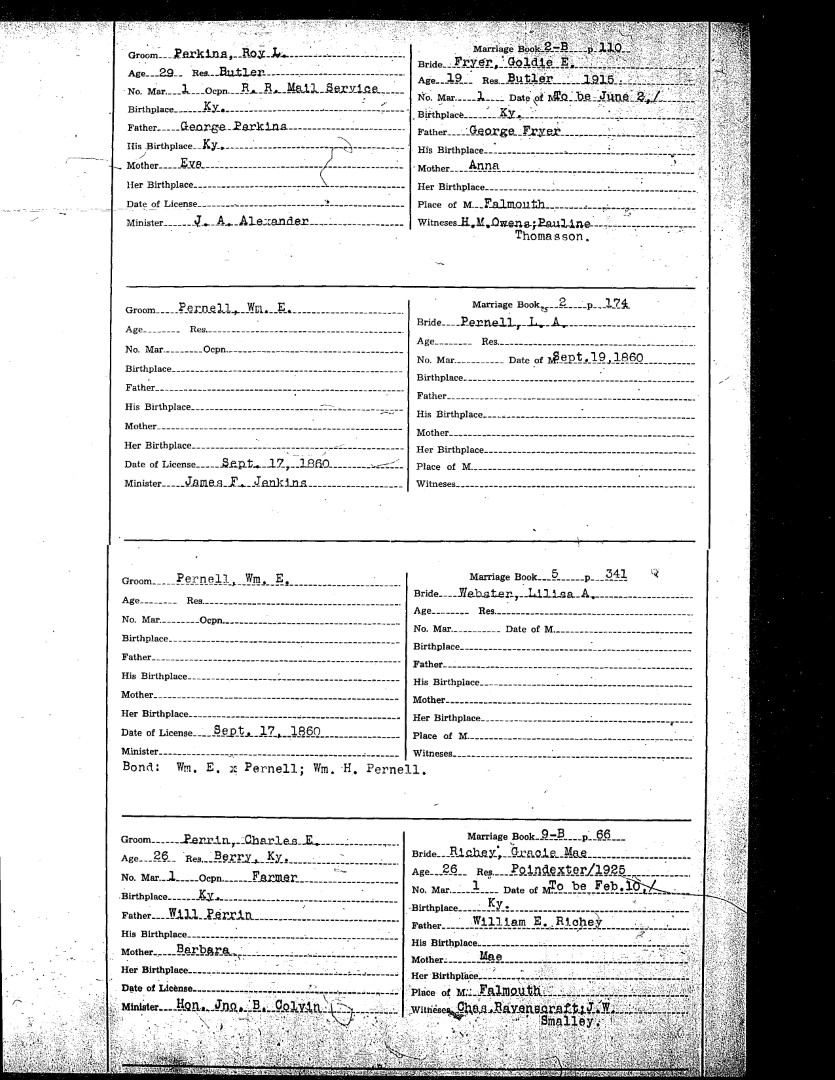 Groom Perkins, Roy L.
Age 29 Res. Butler
No. Mar. 1 Ocpn. R. R. Mail Service
Birthplace Ky.
Father George Perkins
His Birthplace Ky.
Mother Eva
Her Birthplace
Date of License
Minister J. A. Alexander
Marriage Book 2-B p. 110
Bride Fryer, Goldie E.
Age 19 Res. Butler 1915.
No. Mar. 1 Date of M. To be June 2,/
Birthplace Ky.
Father George Fryer
His Birthplace
Mother Anna
Her Birthplace
Place of M. Falmouth
Witnesses H.M.Owens;Pauline
Thomasson.
Groom Pernell, Wm. E.
Age Res.
No. Mar. Ocpn.
Birthplace
Father
His Birthplace
Mother
Her Birthplace
Date of License Sept. 17, 1860
Minister James F. Jenkins
Marriage Book 2 p. 174
Bride Pernell, L. A.
Age Res.
No. Mar. Date of M. Sept.19,1860
Birthplace
Father
His Birthplace
Mother
Her Birthplace
Place of M.
Witnesses
Groom Pernell, Wm. E.
Age Res.
No. Mar. Ocpn.
Birthplace
Father
His Birthplace
Mother
Her Birthplace
Date of License Sept. 17, 1860
Minister
Bond: Wm. E. x Pernell; Wm. H. Pernell.
Marriage Book 5 p. 341
Bride Webster, Lilisa A.
Age Res.
No. Mar. Date of M.
Birthplace
Father
His Birthplace
Mother
Her Birthplace
Place of M.
Witnesses
Groom Perrin, Charles E.
Age 26 Res. Berry, Ky.
No. Mar. 1 Ocpn. Farmer
Birthplace Ky.
Father Will Perrin
His Birthplace
Mother Barbara
Her Birthplace
Date of License
Minister Hon. Jno. B. Colvin
Marriage Book 9-B p. 66
Bride Richey, Gracie Mae
Age 26 Res. Poindexter/1925
No. Mar. 1 Date of M. To be Feb.10,/
Birthplace Ky.
Father William E. Richey
His Birthplace
Mother Mae
Her Birthplace
Place of M. Falmouth
Witnesses Chas.Ravenscraft;J.W.
Smalley.